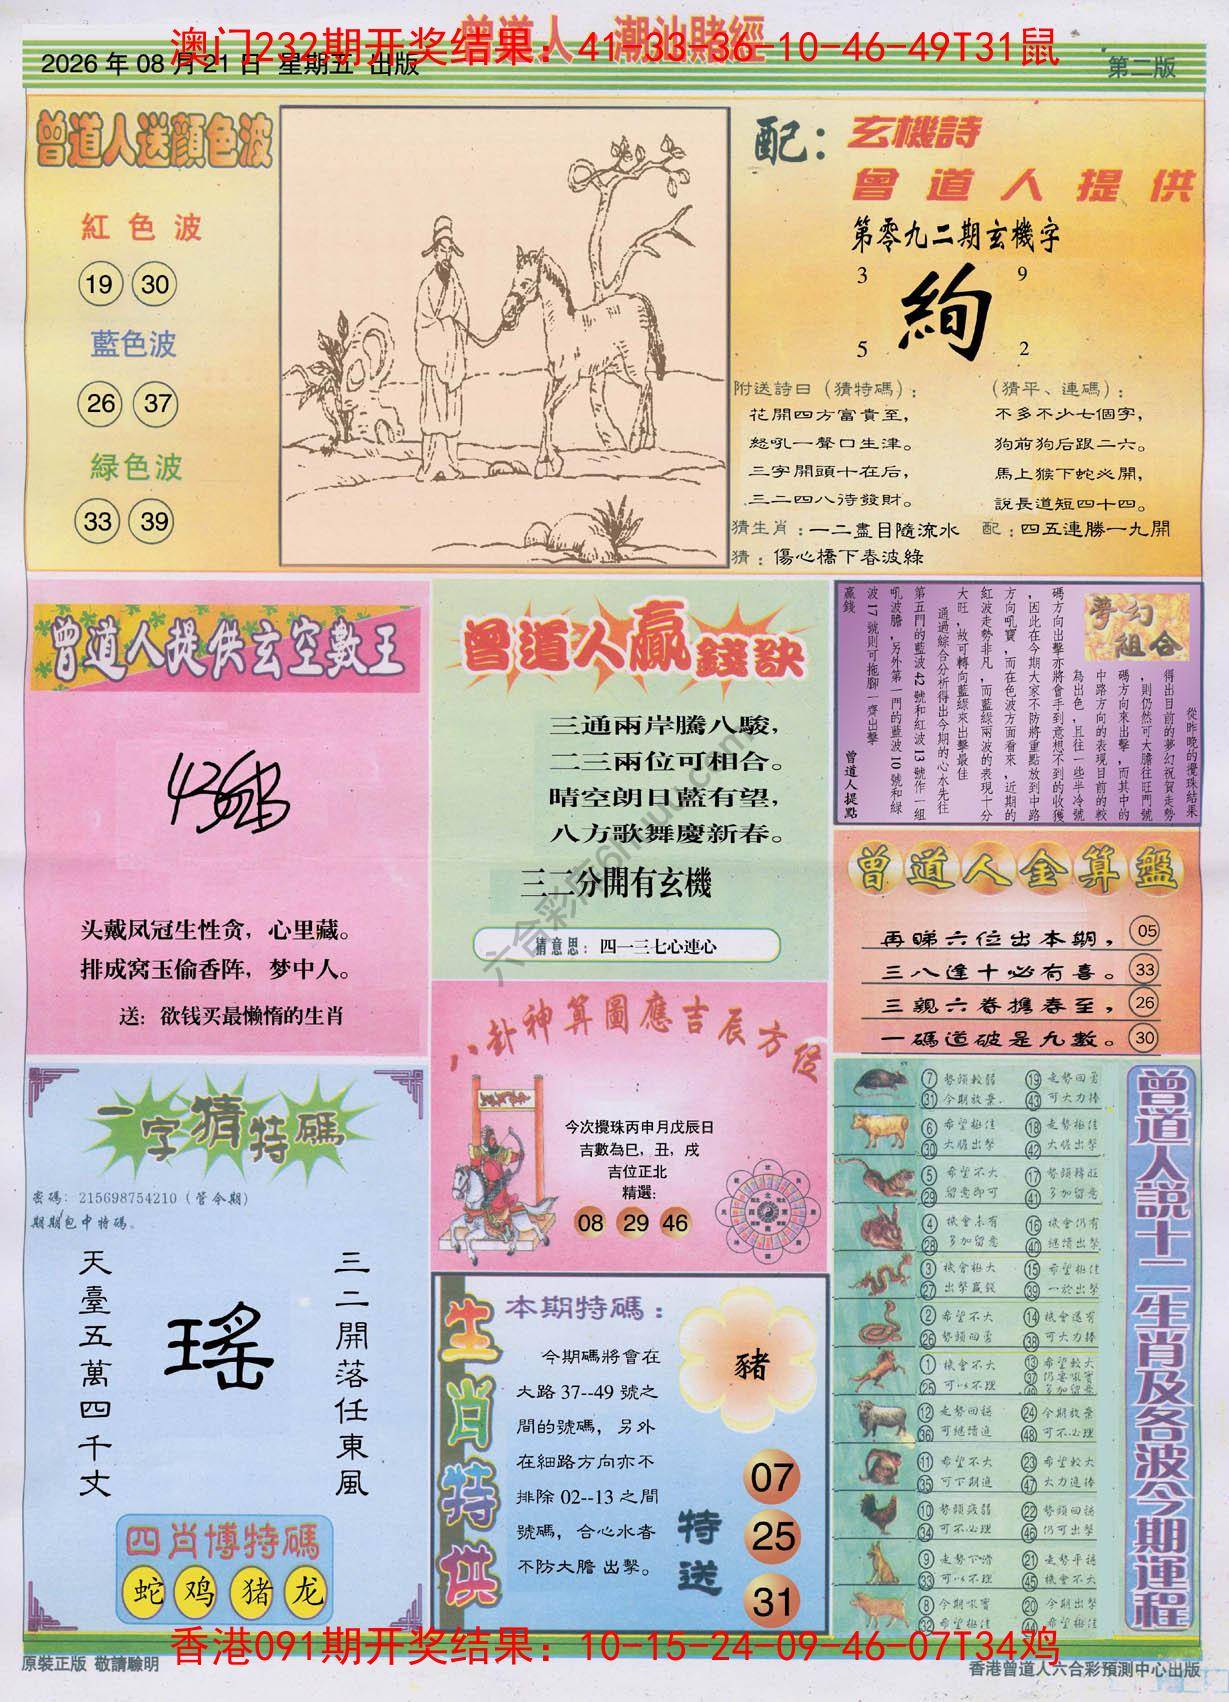 曾道人 潮汕賭經
澳门232期开奖结果：41-33-36-10-46-49T31鼠
2026 年 08 月 21 日 星期五 出版
第二版
曾道人送顏色波
紅色波
19 30
藍色波
26 37
緑色波
33 39
配：玄機詩
曾道人提供
第零九二期玄機字
3 9
絢
5 2
附送詩曰（猜特碼）：
花開四方富貴至，
怒吼一聲口生津。
三字開頭十在后，
三二四八待發財。
（猜平、連碼）：
不多不少七個字，
狗前狗后跟二六。
馬上猴下蛇必開，
説長道短四十四。
猜生肖：一二盡目隨流水
配：四五連勝一九開
猜：傷心橋下春波綠
曾道人提供玄空數王
头戴凤冠生性贪，心里藏。
排成窝玉偷香阵，梦中人。
送：欲钱买最懒惰的生肖
曾道人贏錢訣
三通兩岸騰八駿，
二三兩位可相合。
晴空朗日藍有望，
八方歌舞慶新春。
三二分開有玄機
猜意思：四一三七心連心
夢幻組合
從昨晚的攪珠結果
得出目前的夢幻祝賀走勢
，則仍然可大膽往旺門號
碼方向來出擊，而其中的
中路方向的表現目前的較
為出色，且往一些半冷號
碼方向出擊亦將會手到意想不到的收獲
，因此在今期大家不防將重點放到中路
方向吼寶，而在色波方面看來，近期的
紅波走勢非凡，而藍綠兩波的表現十分
大旺，故可轉向藍綠來出擊最佳
通過綜合分析得出今期的心水先往
第五門的藍波42號和紅波13號作一組
吼波膽，另外第一門的藍波10號和綠
波17號則可拖腳一齊出擊
贏錢
曾道人提點
曾道人金算盤
再睇六位出本期，05
三八逢十必有喜。33
三親六眷攜春至，26
一碼道破是九數。30
八卦神算圖應吉辰方位
今次攪珠丙申月戊辰日
吉數為巳，丑，戌
吉位正北
精選：
08 29 46
一字猜特碼
密碼：215698754210（管今期）
期期包中特碼。
天臺五萬四千丈
瑤
三二開落任東風
四肖博特碼
蛇 鸡 猪 龙
生肖特供
本期特碼：
今期碼將會在
大路 37--49 號之
間的號碼，另外
在細路方向亦不
排除 02--13 之間
號碼，合心水者
不防大膽 出擊。
豬
特送
07
25
31
曾道人説十二生肖及各波今期運程
7 勢頭較弱 19 走勢回勇
31 今期放棄 43 可大力捧
6 希望極佳 18 走勢極佳
30 大膽出擊 42 大膽出擊
5 希望不大 17 勢頭轉旺
29 留意即可 41 多加留意
4 機會未有 16 機會仍有
28 多加留意 40 繼續出擊
3 機會極大 15 希望極佳
27 出擊贏錢 39 一於出擊
2 希望不大 14 機會還有
26 勢頭回勇 38 可大力捧
1 機會不大 13 希望較大
25 可以不理 37 仍要吼實
49 多加留意
12 走勢回穩 24 今期放棄
36 可繼續追 48 可不必理
11 希望不大 23 希望較大
35 可下期追 47 大力追捧
10 勢頭議弱 22 勢頭回穩
34 可不必理 46 仍可出擊
9 走勢下滑 21 走勢平穩
33 可以不理 45 機會不大
8 今期吼實 20 今期出擊
32 希望極佳 44 希望極佳
六合彩库6huu.com
香港091期开奖结果：10-15-24-09-46-07T34鸡
原裝正版 敬請驗明
香港曾道人六合彩預測中心出版